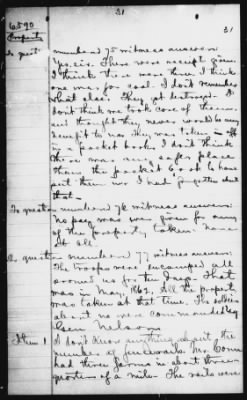 31
31
6590
Property
To question
number 75 witness answers:
Yes, sir. There were receipts given.
I think there were three. I think
one was for coal. I don't remember
what else. They got destroyed. I
don't think we took care of them.
and thought they never would be any
benefit to us. They was taken off
in a pocket book. I don't think
there was any safer place
than the pocket book to have
put them in. I had forgotten about
that.
To question number 76 witness answers:
No pay was ever given for any
of the property taken. None
at all.
To question number 77 witness answers:
The troops were encamped all
around us for ten days. That
was in May, 1863. All the property
was taken at that time. The soldiers
about us were commanded by
Gen. Nelson
Item 1
I don't know anything about the
number of
Mr. Corn
had three farms in about three
quarters of a mile. The rails were